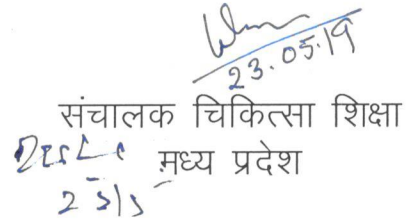 23.05.19
संचालक चिकित्सा शिक्षा
मध्य प्रदेश